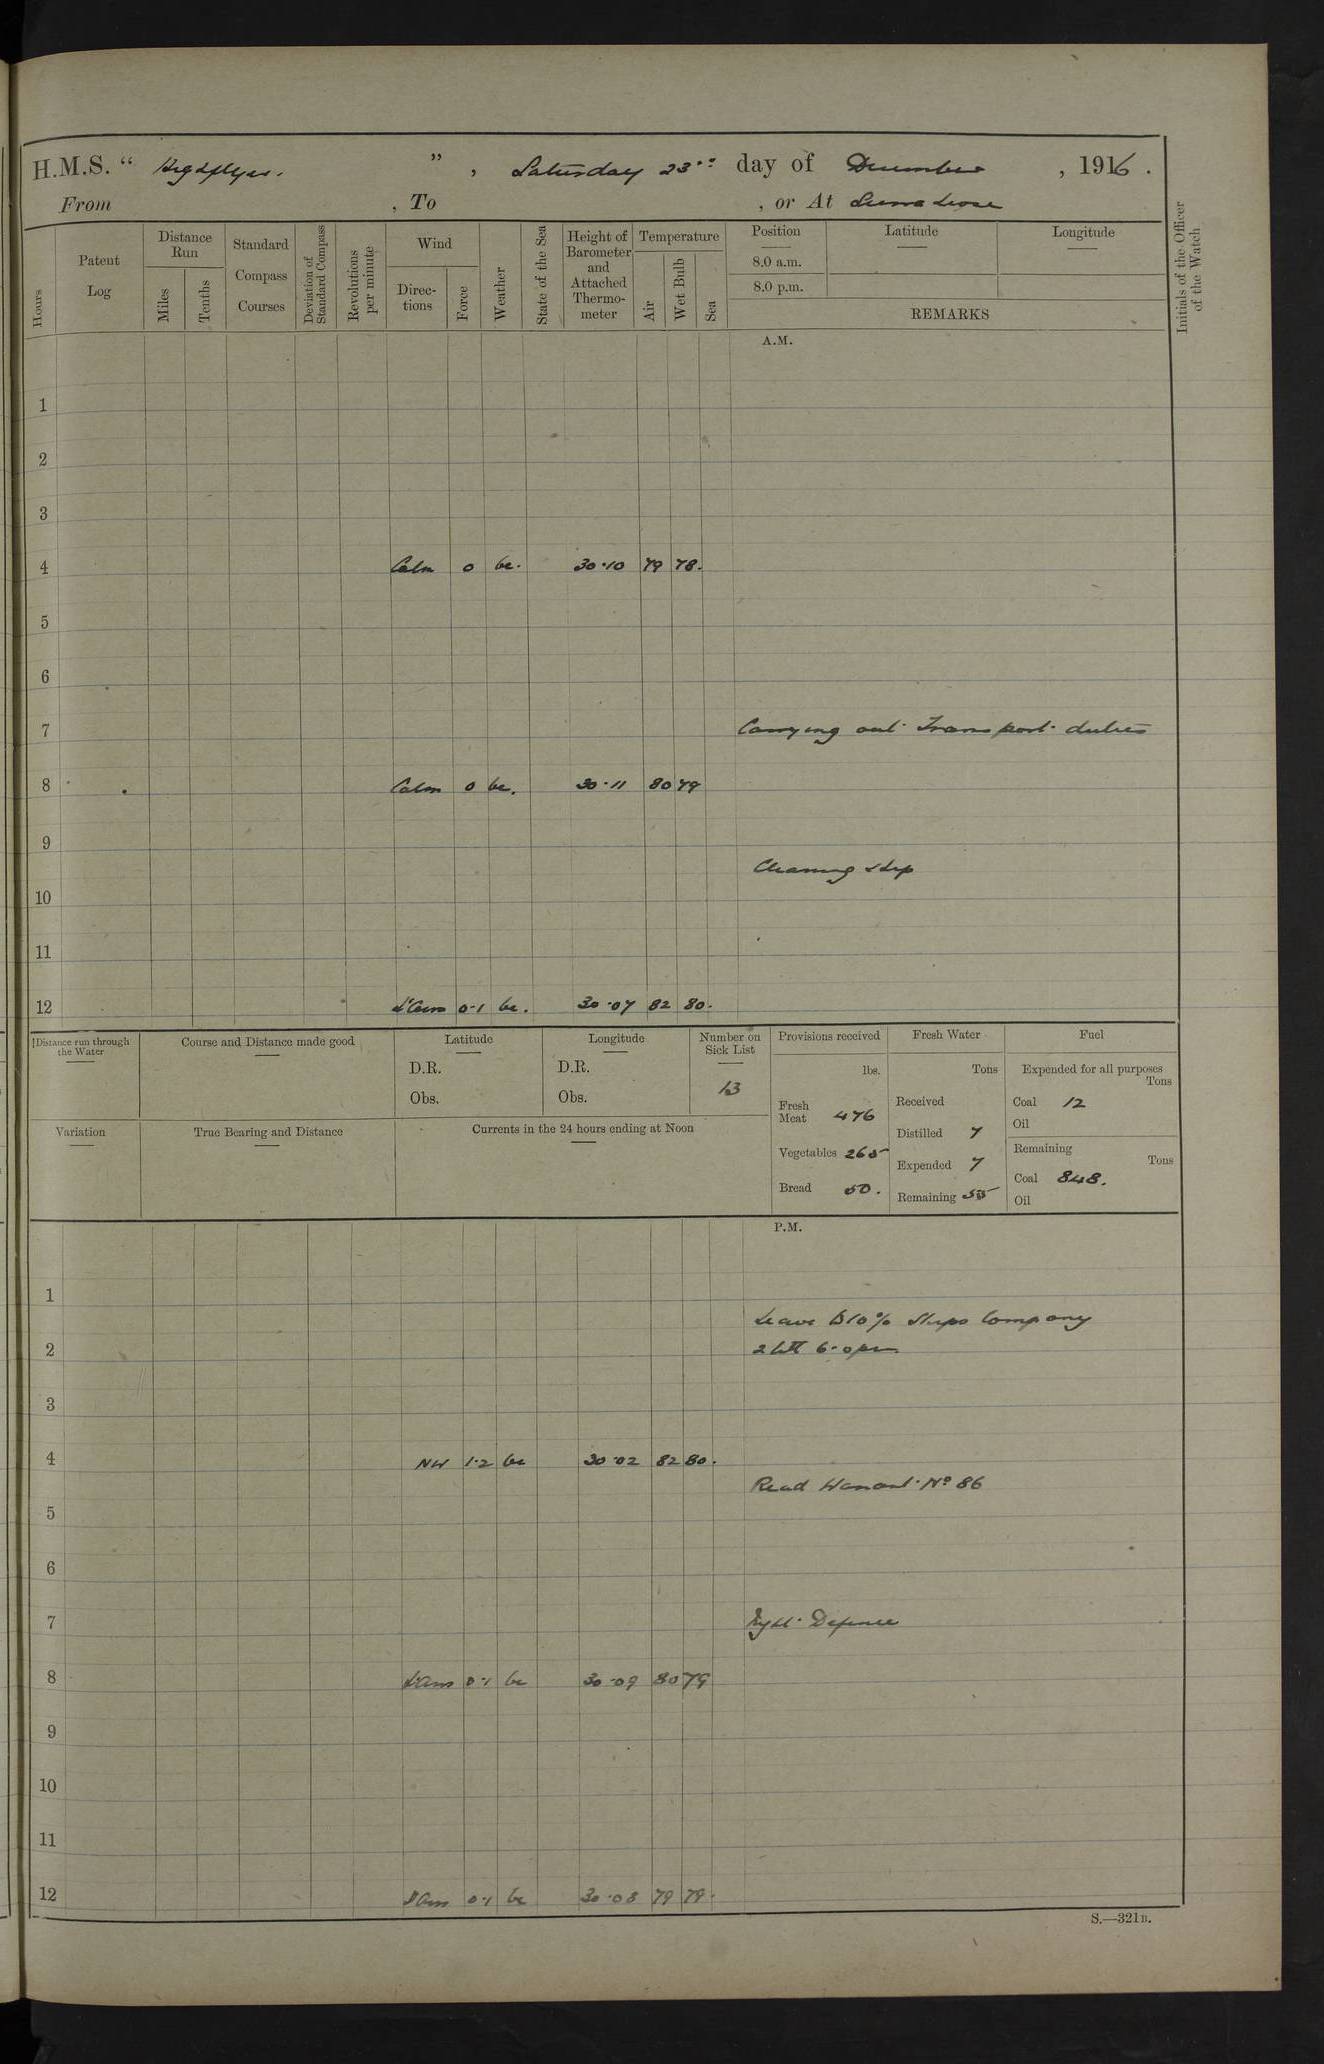 H.M.S. “ Highflyer. ” , Saturday 23rd day of December , 1916 .
From , To , or At Sierra Leone
Hours
Patent Log
Distance Run
Miles
Tenths
Standard Compass Courses
Deviation of Standard Compass
Revolutions per minute
Wind
Directions
Force
Weather
State of the Sea
Height of Barometer and Attached Thermometer
Temperature
Air
Wet Bulb
Sea
Position
8.0 a.m.
8.0 p.m.
Latitude
Longitude
REMARKS
Initials of the Officer of the Watch
A.M.
1
2
3
4 Calm 0 bc. 30.10 79 78.
5
6
7 Carrying out Transport duties
8 Calm 0 bc. 30.11 80 79
9
Cleaning ship
10
11
12 0-1 bc. 30.07 82 80.
Distance run through the Water
Course and Distance made good
Latitude
D.R.
Obs.
Longitude
D.R.
Obs.
Number on Sick List
13
Provisions received
lbs.
Fresh Meat 476
Vegetables 265
Bread 50.
Fresh Water
Tons
Received
Distilled 7
Expended 7
Remaining 55
Fuel
Expended for all purposes
Tons
Coal 12
Oil
Remaining
Tons
Coal 848.
Oil
Variation
True Bearing and Distance
Currents in the 24 hours ending at Noon
P.M.
1
Leave to 10% Ships Company
2 till 6.0pm
3
4 NW 1.2 bc 30.02 82 80.
Read Warrant No 86
5
6
7 Night Defence
8 0.1 bc 30.09 80 79
9
10
11
12 0.1 bc 30.08 79 79.
S.—321B.